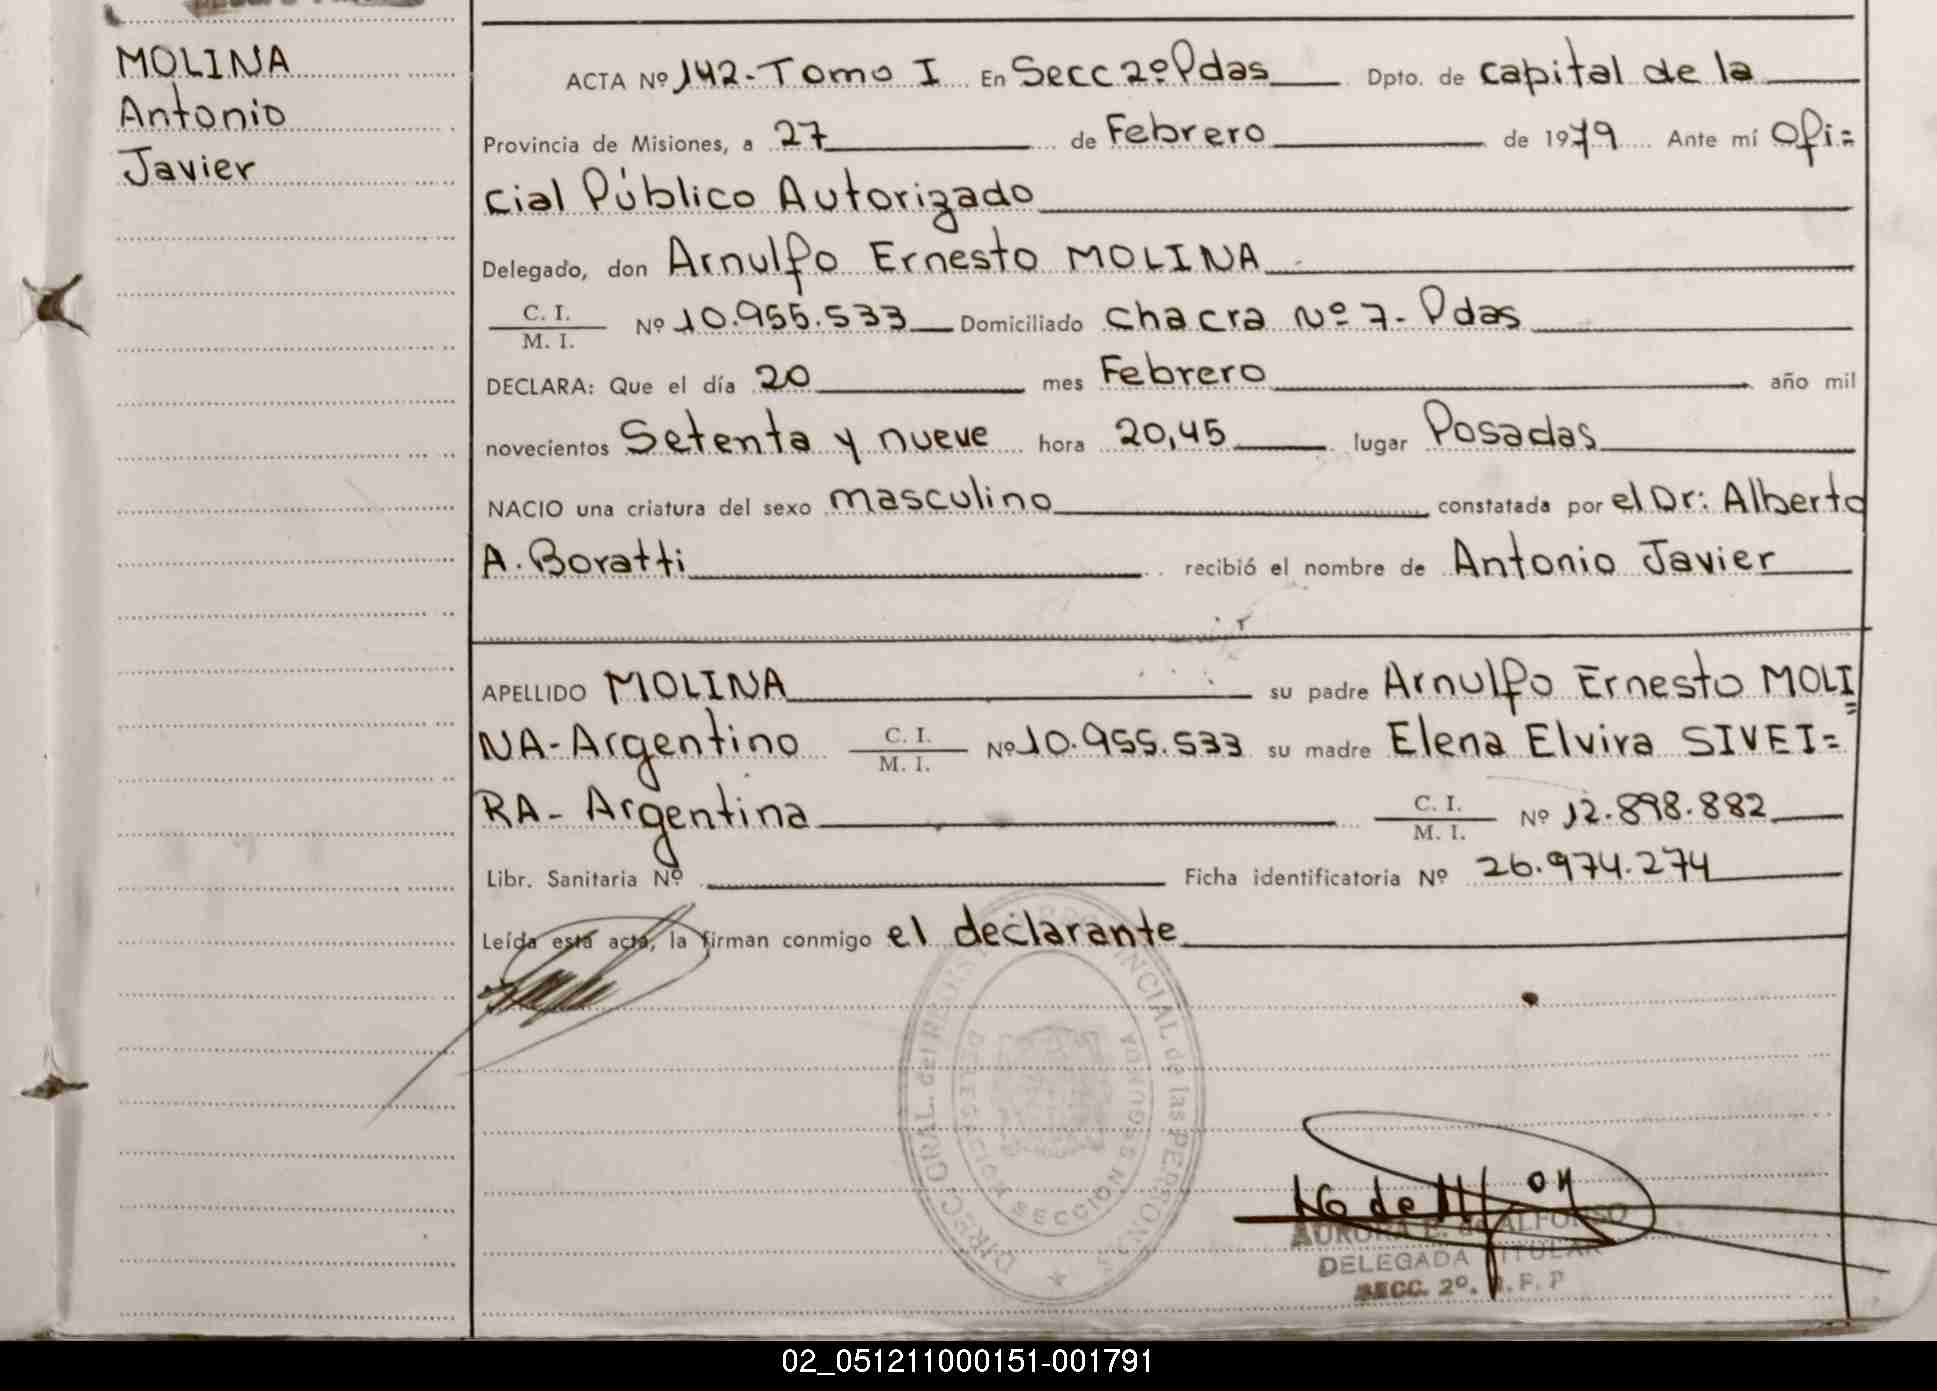 MOLINA
Antonio
Javier
ACTA Nº 142-Tomo I En Secc 2º Pdas Dpto. de capital de la
Provincia de Misiones, a 27 de Febrero de 1979 Ante mí Ofi=
cial Público Autorizado
Delegado, don Arnulfo Ernesto MOLINA
C. I.
M. I.
Nº 10.955.533 Domiciliado chacra Nº 7- Pdas
DECLARA: Que el día 20 mes Febrero año mil
novecientos Setenta y nueve hora 20,45 lugar Posadas
NACIO una criatura del sexo masculino constatada por el Dr: Alberto
A. Boratti recibió el nombre de Antonio Javier
APELLIDO MOLINA su padre Arnulfo Ernesto MOLI=
NA-Argentino C. I. M. I. Nº 10.955.533 su madre Elena Elvira SIVEI=
RA- Argentina C. I. M. I. Nº 12.898.882
Libr. Sanitaria Nº Ficha identificatoria Nº 26.974.274
Leída esta acta, la firman conmigo el declarante
DIREC. GRAL. del REGISTRO PROVINCIAL de las PERSONAS
DELEGACION SECCION SEGUNDA
AURORA B. de ALFONSO
DELEGADA TITULAR
SECC. 2º. R. P. P
02_051211000151-001791